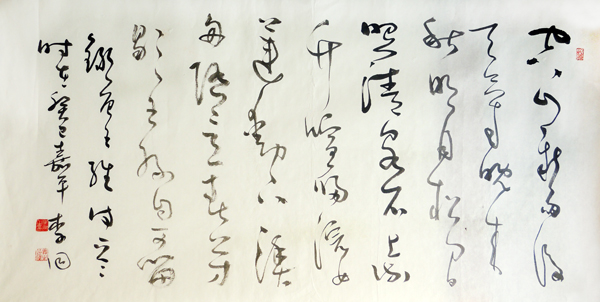 空山新雨後
天氣晚来
秋明月松間
照清泉石上流
竹喧歸浣女
蓮動下漁
舟随意春芳
歇王孫自可留
錄唐王維诗
时在癸巳嘉平 李